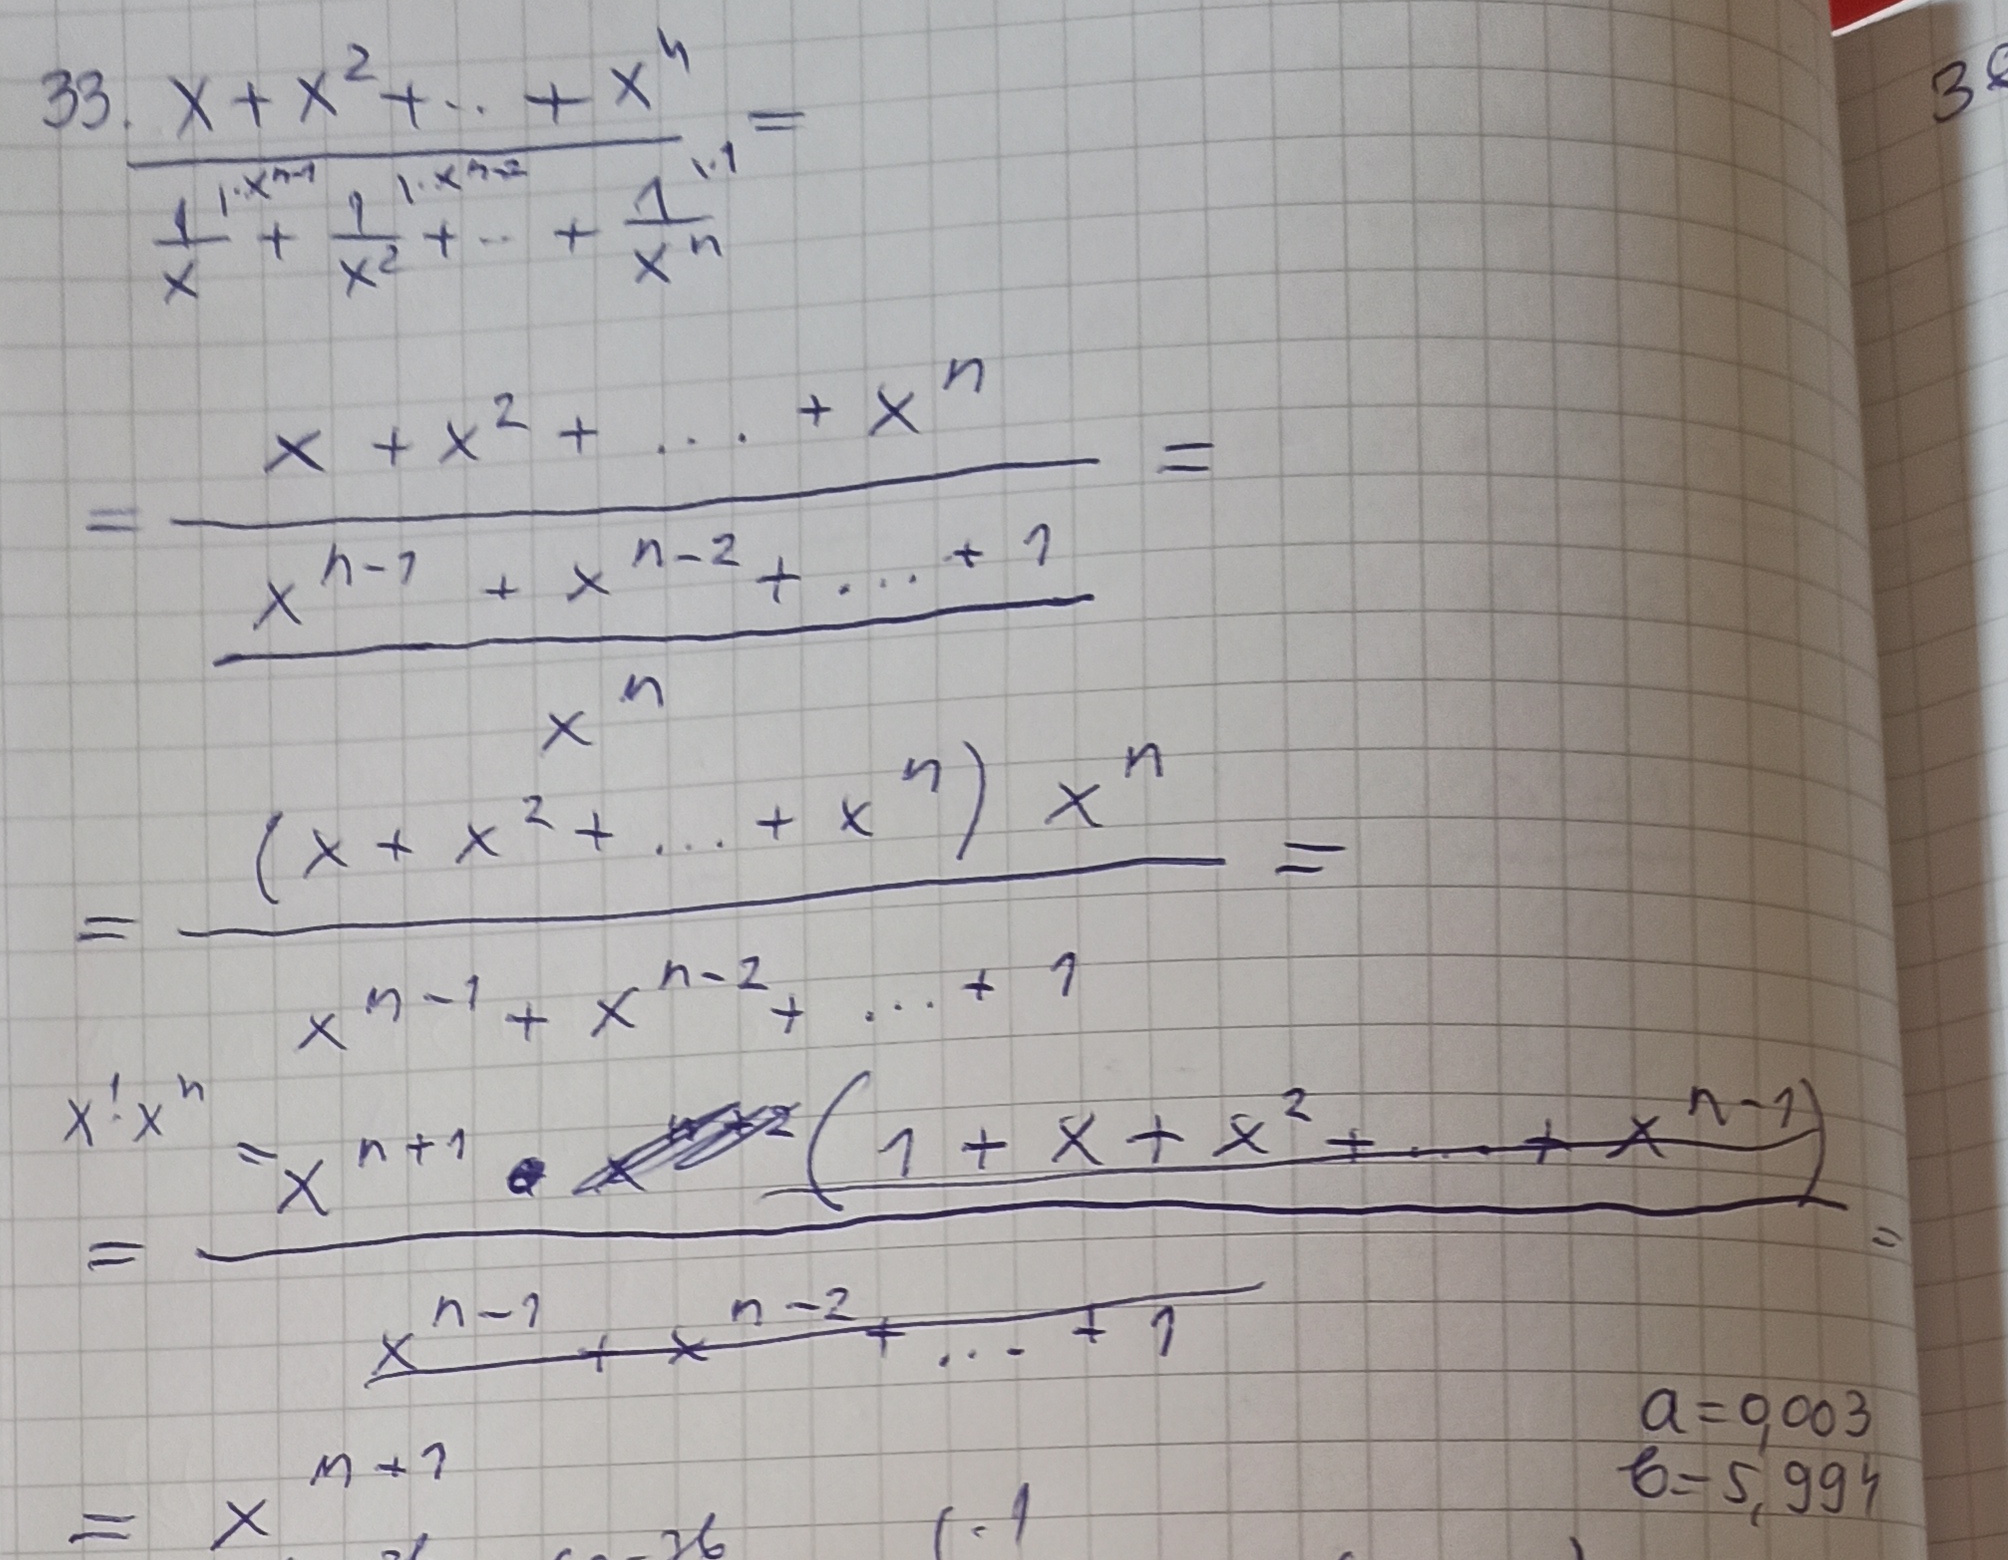 33. x + x² + .. + xⁿ
=
1/x |·xⁿ⁻¹ + 1/x² |·xⁿ⁻² + .. + 1/xⁿ |·1
x + x² + .... + xⁿ
= =
xⁿ⁻¹ + xⁿ⁻² + .... + 1
xⁿ
(x + x² + .... + xⁿ) xⁿ
= =
xⁿ⁻¹ + xⁿ⁻² + .... + 1
x¹·xⁿ = xⁿ⁺¹ · (1 + x + x² + .... + xⁿ⁻¹)
= =
xⁿ⁻¹ + xⁿ⁻² + .... + 1
= xⁿ⁺¹
a = 0,003
b = 5,994